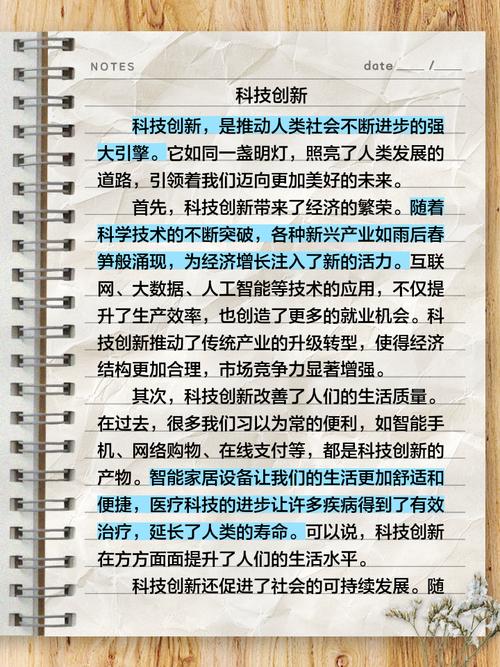 NOTES
date____ /____
科技创新
科技创新，是推动人类社会不断进步的强
大引擎。它如同一盏明灯，照亮了人类发展的
道路，引领着我们迈向更加美好的未来。
首先，科技创新带来了经济的繁荣。随着
科学技术的不断突破，各种新兴产业如雨后春
笋般涌现，为经济增长注入了新的活力。互联
网、大数据、人工智能等技术的应用，不仅提
升了生产效率，也创造了更多的就业机会。科
技创新推动了传统产业的升级转型，使得经济
结构更加合理，市场竞争力显著增强。
其次，科技创新改善了人们的生活质量。
在过去，很多我们习以为常的便利，如智能手
机、网络购物、在线支付等，都是科技创新的
产物。智能家居设备让我们的生活更加舒适和
便捷，医疗科技的进步让许多疾病得到了有效
治疗，延长了人类的寿命。可以说，科技创新
在方方面面提升了人们的生活水平。
科技创新还促进了社会的可持续发展。随